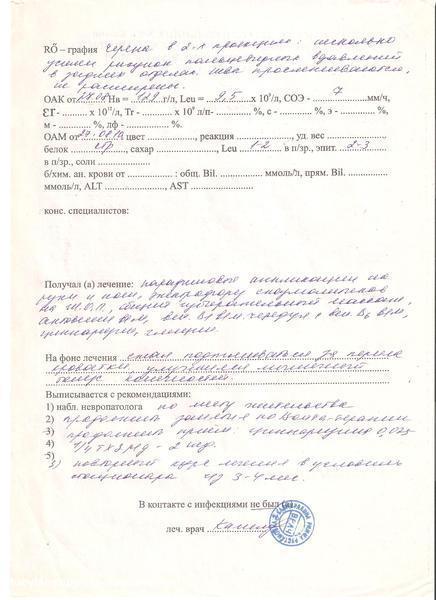 RÖ – графия черепа в 2-х проекциях: несколько
усилен рисунок пальцевидных вдавлений
в задних отделах. Швы прослеживаются,
не расширены.
ОАК от 17.08 Нв = 129 г/л, Leu = 9,5 х 10⁹/л, СОЭ - 7 мм/ч,
Er - х 10¹²/л, Tr - х 10⁹ л/п- %, с - %- э - %,
м - %, лф - %.
ОАМ от цвет , реакция , уд. вес
белок отр, сахар , Leu 1-2 в п/зр., эпит. 2-3
в п/зр., соли
б/хим. ан. крови от : общ. Bil. ммоль/л, прям. Bil.
ммоль/л, ALT , AST
конс. специалистов:
Получал (а) лечение: парафиновые аппликации на
руки и ноги, электрофорез
на Ш.О.П., общий массаж,
в/м, вит. В1 в/м чередуя с вит. В6 в/м,
циннаризин, глицин.
На фоне лечения стал подтягиваться за перила
кроватки, улучшился мышечный
тонус конечностей.
Выписывается с рекомендациями:
1) набл. невропатолога по месту жительства
2) продолжить занятия по Войта-терапии
3) продолжить прием циннаризина 0,025
4) 1/4 т х 3 р/д - 2 нед.
5)
5) повторный курс лечения в условиях
стационара ч/з 3-4 мес.
В контакте с инфекциями не был (а)
леч. врач
ВРАЧ